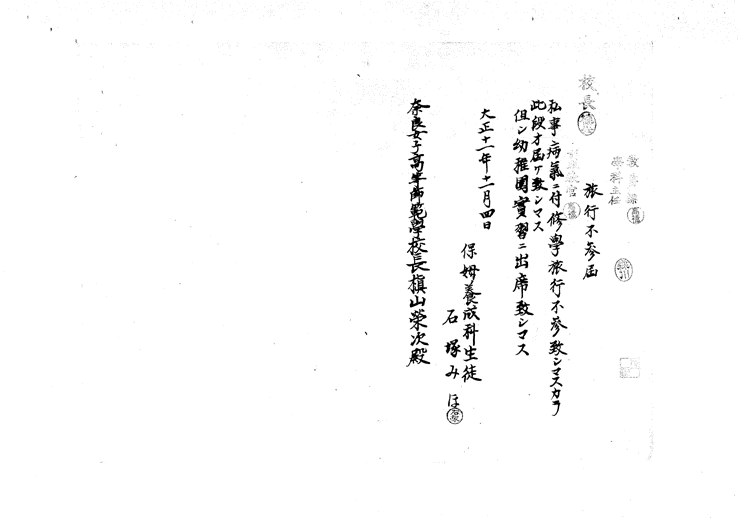 校長
旅行不参届
私事病氣ニ付修學旅行不参致シマスカラ
此段オ届ケ致シマス
但シ幼稚園實習ニ出席致シマス
大正十一年十一月四日
保姆養成科生徒
石塚みほ
奈良女子高等師範學校長槇山榮次殿